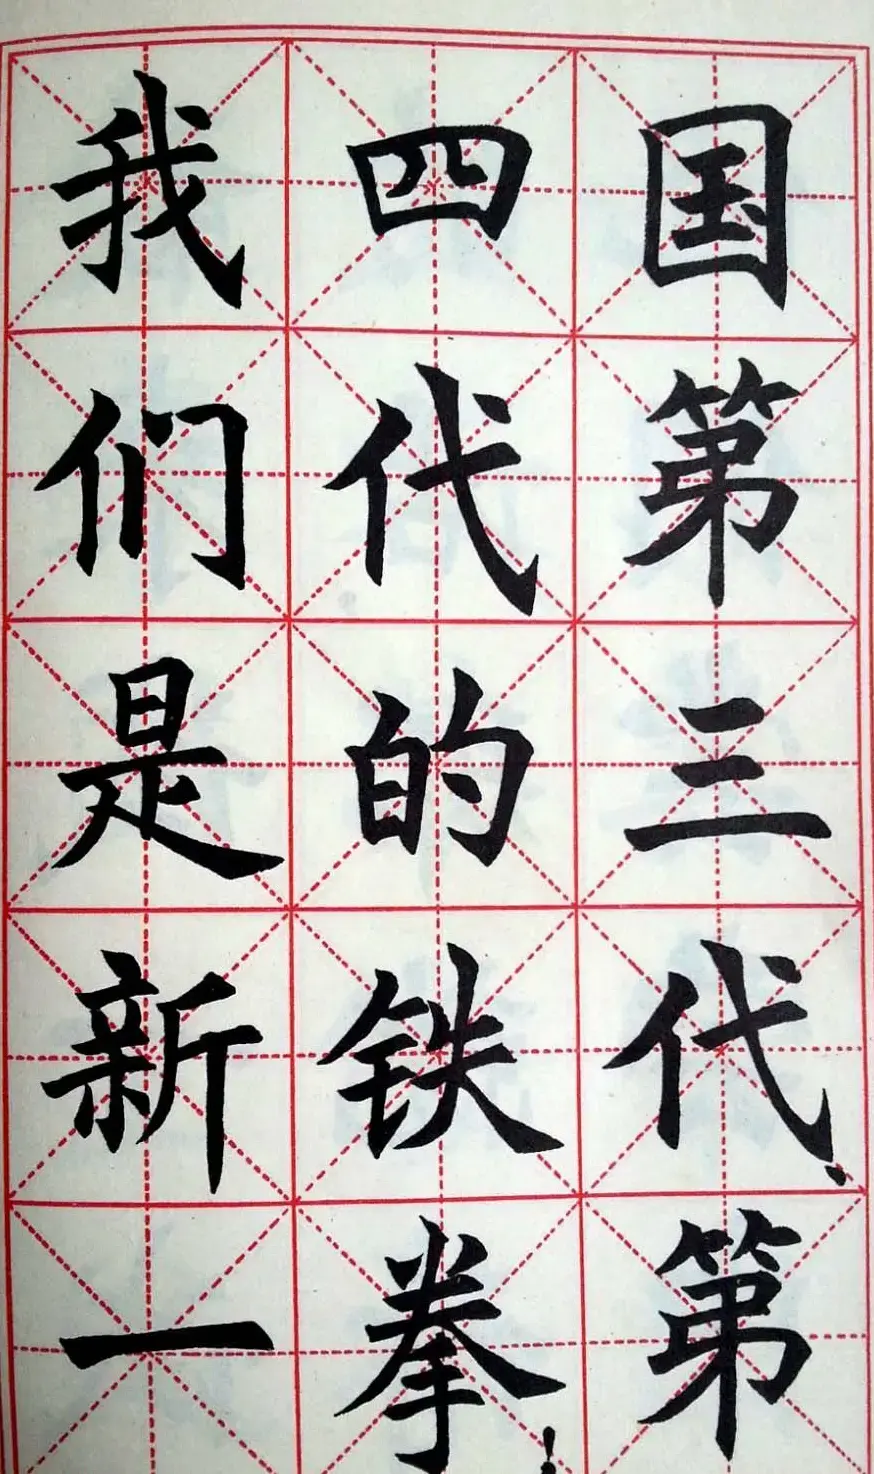 国第三代、第
四代的铁拳!
我们是新一